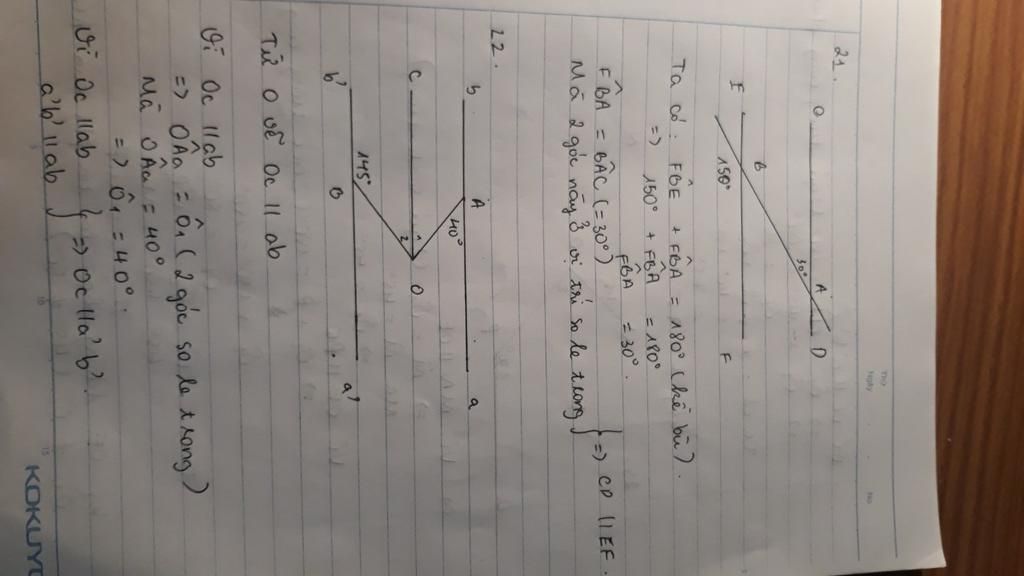 Thứ
Ngày
No
21.
O A D
30°
E B F
150°
Ta có: FB̂E + FB̂A = 180° (kề bù).
=> 150° + FB̂A = 180°
FB̂A = 30°.
FB̂A = BÂC (=30°)
Mà 2 góc này ở vị trí so le trong } => CD // EF.
22.
b A a
40°
c 1 O
2
145°
b' B a'
Từ O vẽ Oc // ab
Vì Oc // ab
=> OÂa = Ô1 (2 góc so le trong)
Mà OÂa = 40°
=> Ô1 = 40°.
Vì Oc // ab } => Oc // a'b'
a'b' // ab
KOKUYO